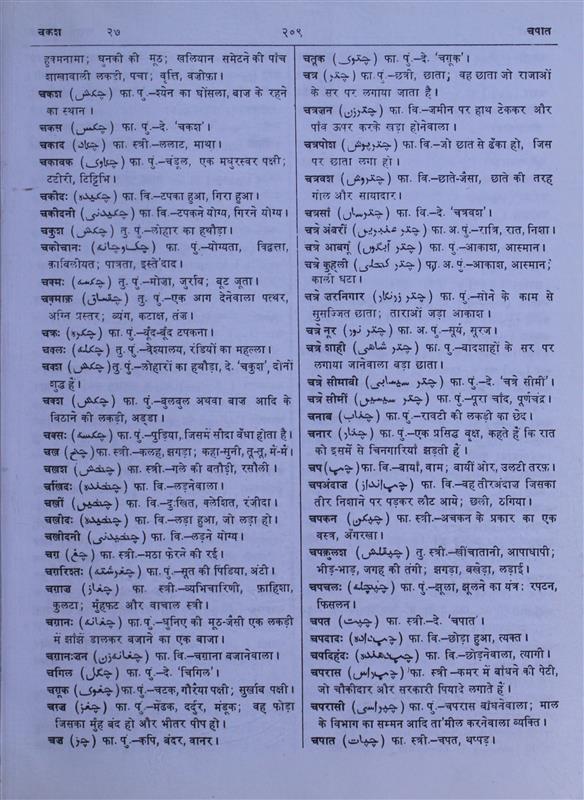 चकश २७ २०९ चपात
हुक्मनामा; धुनकी की मूठ; खलियान समेटने की पाँच
शाखावाली लकड़ी, पचा; वृत्ति, वज़ीफ़ा।
चकश (چکش) फा. पुं.-श्येन का घोंसला, बाज़ के रहने
का स्थान।
चकस (چکس) फा. पुं.-दे. 'चकश'।
चकाद (چکاد) फा. स्त्री.-ललाट, माथा।
चकावक (چکاوک) फा. पुं.-चंडूल, एक मधुरस्वर पक्षी;
टटीरी, टिट्टिभि।
चकीदः (چکیدہ) फा. वि.-टपका हुआ, गिरा हुआ।
चकीदनी (چکیدنی) फा. वि.-टपकने योग्य, गिरने योग्य।
चकुश (چکش) तु. पुं.-लोहार का हथौड़ा।
चकोचानः (چکوچانہ) फा. पुं.-योग्यता, विद्वत्ता,
क़ाबिलीयत; पात्रता, इस्ते'दाद।
चक्मः (چکمہ) तु. पुं.-मोज़ा, जुर्राब; बूट जूता।
चक़्माक़ (چقماق) तु. पुं.-एक आग देनेवाला पत्थर,
अग्नि प्रस्तर; व्यंग, कटाक्ष, तंज़।
चक्रः (چکرہ) फा. पुं.-बूँद-बूँद टपकना।
चक्लः (چکلہ) तु. पुं.-वेश्यालय, रंडियों का महल्ला।
चक्श (چکش) तु. पुं.-लोहारों का हथौड़ा, दे. 'चकुश', दोनों
शुद्ध हैं।
चक्श (چکش) फा. पुं.-बुलबुल अथवा बाज़ आदि के
बिठाने की लकड़ी, अड्डा।
चक्सः (چکسہ) फा. पुं.-पुड़िया, जिसमें सौदा बँधा होता है।
चख़ (چخ) फा. स्त्री.-कलह, झगड़ा; कहा-सुनी, तू-तू, मैं-मैं।
चख़श (چخش) फा. स्त्री.-गले की बतौड़ी, रसौली।
चख़िदः (چخندہ) फा. वि.-लड़नेवाला।
चख़ीं (چخیں) फा. वि.-दुःखित, क्लेशित, रंजीदा।
चख़ीदः (چخیدہ) फा. वि.-लड़ा हुआ, जो लड़ा हो।
चख़ीदनी (چخیدنی) फा. वि.-लड़ने योग्य।
चग़ (چغ) फा. स्त्री.-मठा फेरने की रई।
चग़रिश्तः (چغرشتہ) फा. पुं.-सूत की पिंडिया, अंटी।
चग़ाज़ (چغاز) फा. स्त्री.-व्यभिचारिणी, फ़ाहिशा,
कुलटा; मुँहफट और वाचाल स्त्री।
चग़ानः (چغانہ) फा. पुं.-धुनिए की मूठ-जैसी एक लकड़ी
में झाँझ डालकर बजाने का एक बाजा।
चग़ानःज़न (چغانہ زن) फा. वि.-चग़ाना बजानेवाला।
चगिल (چگل) फा. पुं.-दे. 'चिगिल'।
चग़ूक (چغوک) फा. पुं.-चटक, गौरैया पक्षी; सुर्ख़ाब पक्षी।
चज़ (چغز) फा. पुं.-मेंढक, दर्दुर, मंडूक; वह फोड़ा
जिसका मुँह बंद हो और भीतर पीप हो।
चज़ (چز) फा. पुं.-कपि, बंदर, वानर।
चतूक (چتوک) फा. पुं.-दे. 'चग़ूक'।
चत्र (چتر) फा. पुं.-छत्री, छाता; वह छाता जो राजाओं
के सर पर लगाया जाता है।
चत्रज़न (چترزن) फा. वि.-ज़मीन पर हाथ टेककर और
पाँव ऊपर करके खड़ा होनेवाला।
चत्रपोश (چترپوش) फा. वि.-जो छात से ढँका हो, जिस
पर छाता लगा हो।
चत्रवश (چتروش) फा. वि.-छाते-जैसा, छाते की तरह
गोल और सायादार।
चत्रसाँ (چترساں) फा. वि.-दे. 'चत्रवश'।
चत्रे अंबरीं (چتر عنبریں) फा. अ. पुं.-रात्रि, रात, निशा।
चत्रे आबगूं (چتر آبگوں) फा. पुं.-आकाश, आस्मान।
चत्रे कुहली (چتر کحلی) फा. अ. पुं.-आकाश, आस्मान;
काली घटा।
चत्रे ज़रनिगार (چتر زرنگار) फा. पुं.-सोने के काम से
सुसज्जित छाता; ताराओं जड़ा आकाश।
चत्रे नूर (چتر نور) फा. अ. पुं.-सूर्य, सूरज।
चत्रे शाही (چتر شاہی) फा. पुं.-बादशाहों के सर पर
लगाया जानेवाला बड़ा छाता।
चत्रे सीमाबी (چتر سیمابی) फा. पुं.-दे. 'चत्रे सीमीं'।
चत्रे सीमीं (چتر سیمیں) फा. पुं.-पूरा चाँद, पूर्णचंद्र।
चनाब (چناب) फा. पुं.-रावटी की लकड़ी का छेद।
चनार (چنار) फा. पुं.-एक प्रसिद्ध वृक्ष, कहते हैं कि रात
को इसमें से चिनगारियाँ झड़ती हैं।
चप (چپ) फा. वि.-बायाँ, वाम; बायीं ओर, उलटी तरफ़।
चपअंदाज़ (چپ انداز) फा. वि.-वह तीरअंदाज़ जिसका
तीर निशाने पर पड़कर लौट आये; छली, ठगिया।
चपकन (چپکن) फा. स्त्री.-अचकन के प्रकार का एक
वस्त्र, अँगरखा।
चपक़ुलश (چپقلش) तु. स्त्री.-खींचातानी, आपाधापी;
भीड़-भाड़, जगह की तंगी; झगड़ा, बखेड़ा, लड़ाई।
चपचलः (چپچلہ) फा. पुं.-झूला, झूलने का यंत्र; रपटन,
फिसलन।
चपत (چپت) फा. स्त्री.-दे. 'चपात'।
चपदादः (چپ دادہ) फा. वि.-छोड़ा हुआ, त्यक्त।
चपदिहंदः (چپ دہندہ) फा. वि.-छोड़नेवाला, त्यागी।
चपरास (چپراس) फा. स्त्री.-कमर में बाँधने की पेटी,
जो चौकीदार और सरकारी पियादे लगाते हैं।
चपरासी (چپراسی) फा. पुं.-चपरास बाँधनेवाला; माल
के विभाग का सम्मन आदि ता'मील करनेवाला व्यक्ति।
चपात (چپات) फा. स्त्री.-चपत, थप्पड़।